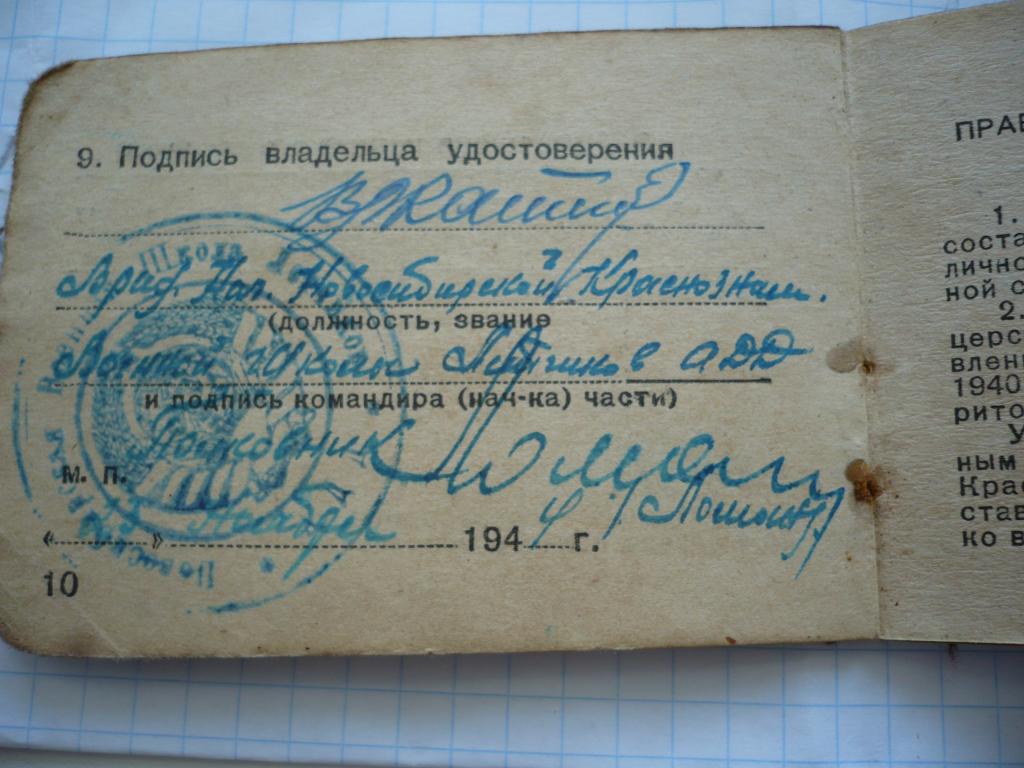 9. Подпись владельца удостоверения
Врид. Нач. Новосибирской Краснознам.
(должность, звание
Военной Школы Лётчиков АДД
и подпись командира (нач-ка) части)
Полковник
м. п.
« » Ноября 1944 г.
10
Школа
ПРАВ
1.
соста
лично
ной с
2.
церс
влени
1940
рито
У
ным
Крас
став
ко в